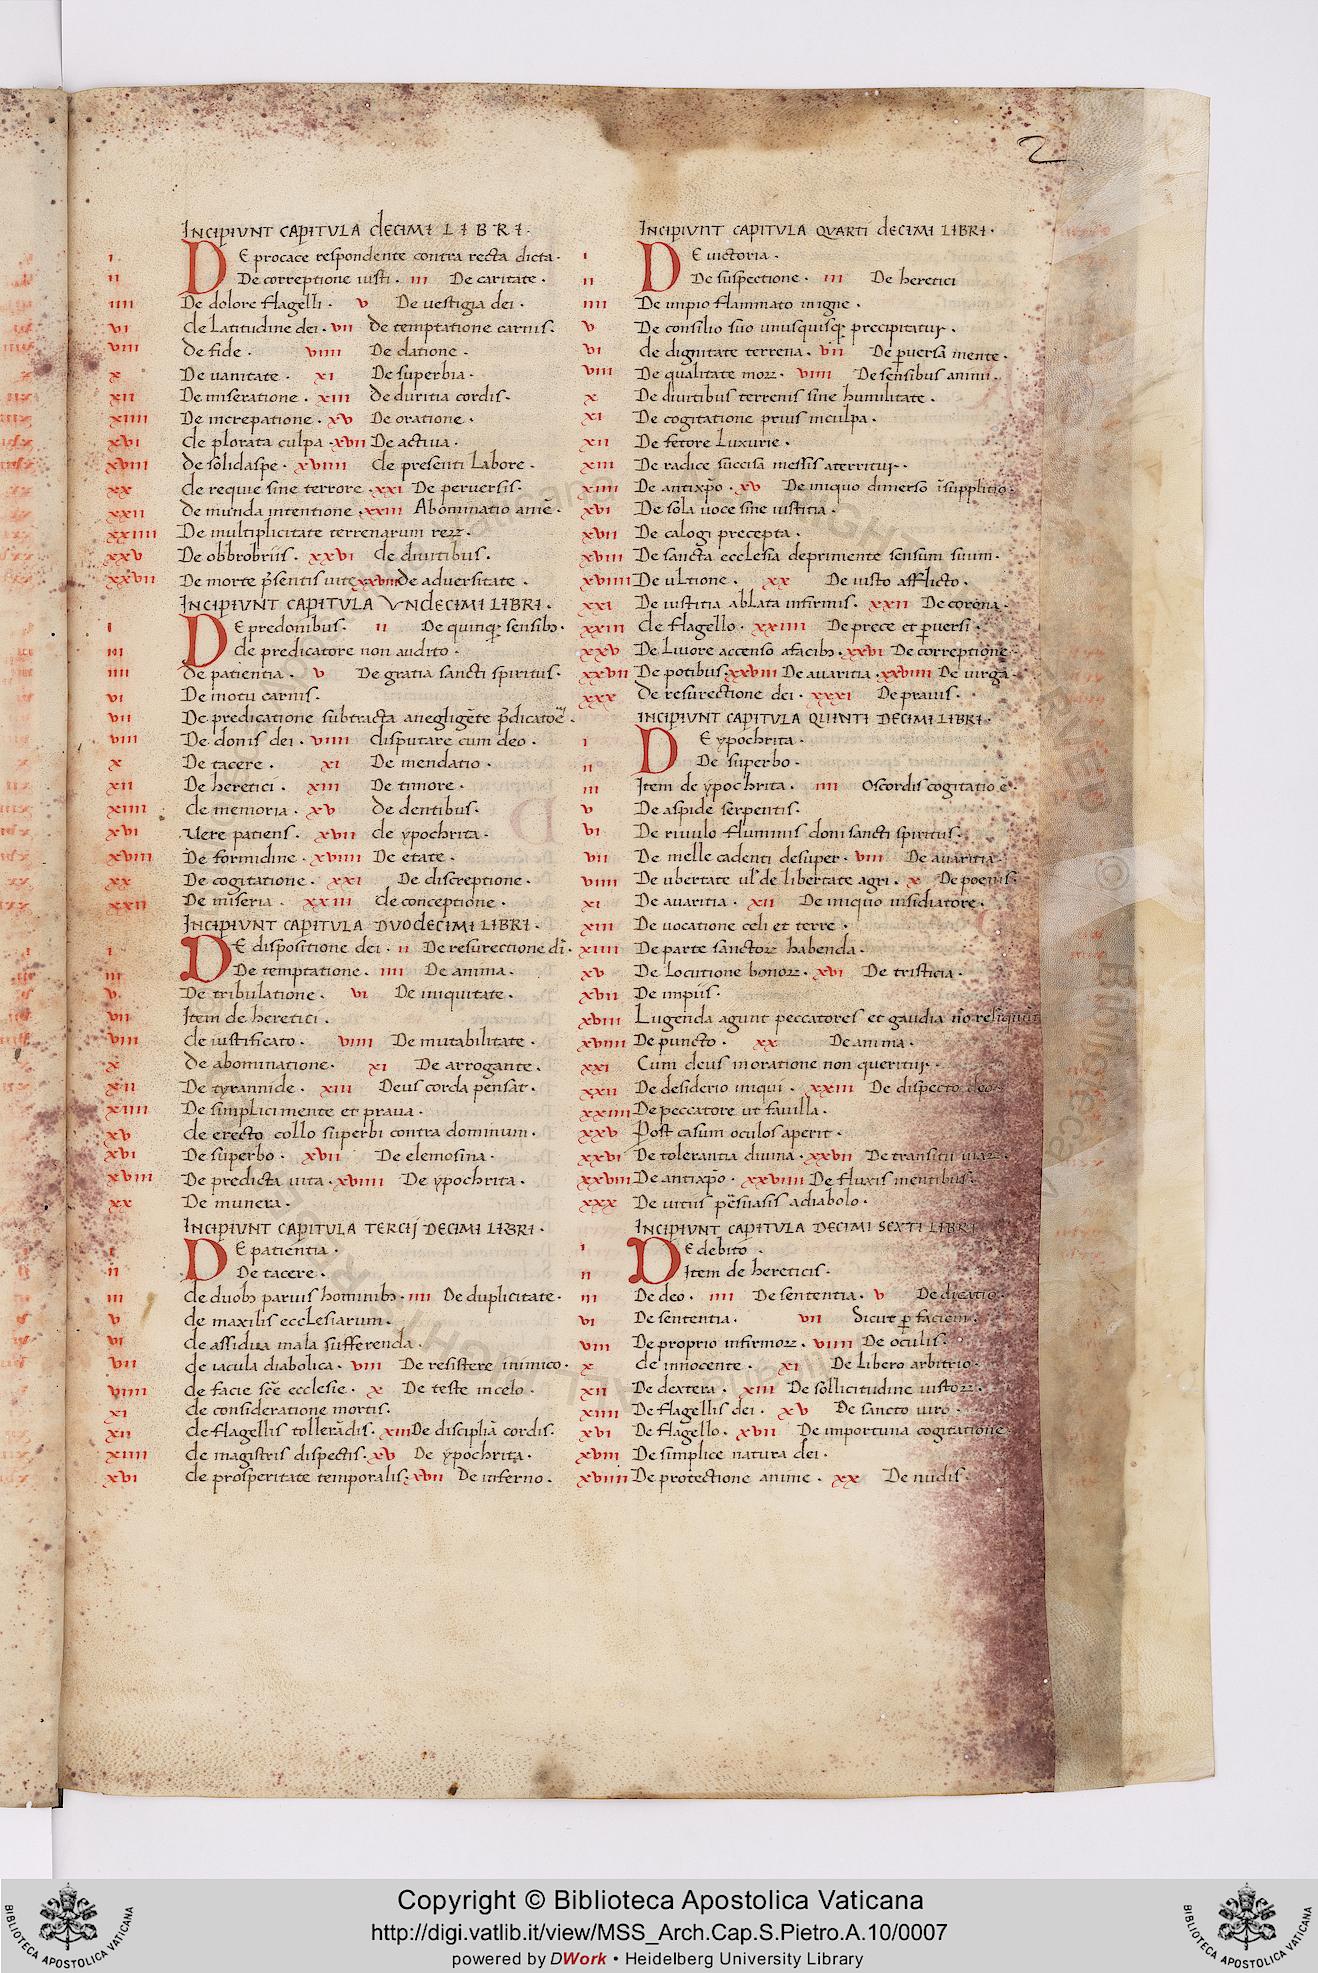 2
INCIPIUNT CAPITULA DECIMI LIBRI.
i. DE procace respondente contra recta dicta.
ii De correptione iusti. iii De caritate.
iiii De dolore flagelli. v De uestigia dei.
vi de Latitudine dei. vii de temptatione carnis.
viii de fide. viiii De datione.
x De uanitate. xi De superbia.
xii De miseratione. xiii de duritia cordis.
xiiii De increpatione. xv De oratione.
xvi de plorata culpa. xvii De actiua.
xviii de solidaspe. xviiii de presenti Labore.
xx de requie sine terrore. xxi De peruersis.
xxii de munda intentione. xxiii Abominatio anie̅.
xxiiii De multiplicitate terrenarum reꝝ.
xxv De obbrobriis. xxvi de diuitibus.
xxvii De morte p̅sentis uite xxviii de aduersitate.
INCIPIUNT CAPITULA UNDECIMI LIBRI.
i DE predonibus. ii De quinq; sensib;.
iii de predicatore non audito.
iiii de patientia. v De gratia sancti spiritus.
vi De motu carnis.
vii De predicatione subtracta anegligẽte p̅dicatoẽ.
viii De donis dei. viiii disputare cum deo.
x De tacere. xi De mendatio.
xii De heretici. xiii De timore.
xiiii de memoria. xv de dentibus.
xvi uere patiens. xvii de ypochrita.
xviii De formidine. xviiii De etate.
xx De cogitatione. xxi De discreptione.
xxii De miseria. xxiii de conceptione.
INCIPIUNT CAPITULA DUODECIMI LIBRI.
i DE dispositione dei. ii De resurectione di̅.
iii De temptatione. iiii De anima.
v. De tribulatione. vi De iniquitate.
vii Item de heretici.
viii de iustificato. viiii De mutabilitate.
x de abominatione. xi De arrogante.
xii De tyrannide. xiii Deus corda pensat.
xiiii De simplici mente et praua.
xv de erecto collo superbi contra dominum.
xvi De superbo. xvii De elemosina.
xviii De predicta uita. xviiii De ypochrita.
xx De munera.
INCIPIUNT CAPITULA TERCIJ DECIMI LIBRI.
i DE patientia.
ii De tacere.
iii de duob; paruis hominib;. iiii De duplicitate.
v de maxilis ecclesiarum.
vi de assidua mala sufferenda.
vii de iacula diabolica. viii De resistere inimico.
viiii de facie sc̅e ecclesie. x De teste incelo.
xi de consideratione mortis.
xii de flagellis tollerãdis. xiii De disciplia̅ cordis.
xiiii de magistris dispectis. xv De ypochrita.
xvi de prosperitate temporalis. xvii De inferno.
INCIPIUNT CAPITULA QUARTI DECIMI LIBRI.
i DE uictoria.
ii De suspectione. iii De heretici
iiii De impio flammato inigne.
v De consilio suo unusquisq; precipitatur.
vi de dignitate terrena. vii De ꝑuersa mente.
viii De qualitate moꝝ. viiii De sensibus animi.
x De diuitibus terrenis sine humilitate.
xi De cogitatione prius inculpa.
xii De fetore Luxurie.
xiii De radice succisa messis aterritur.
xiiii De antixp̅o. xv De iniquo dimerso i̅supplitio.
xvi De sola uoce sine iustitia.
xvii De calogi precepta.
xviii De sancta ecclesia deprimente sensum suum.
xviiii De ultione. xx De iusto afflicto.
xxi De iustitia ablata infirmis. xxii De corona.
xxiii de flagello. xxiiii De prece et ꝑuersi.
xxv De Liuore accenso afacib;. xxvi De correptione.
xxvii De potibus. xxviii De auaritia. xxviiii De uirga.
xxx de resurectione dei. xxxi De prauis.
INCIPIUNT CAPITULA QUINTI DECIMI LIBRI.
i DE ypochrita.
ii De superbo.
iii Item de ypochrita. iiii Oscordis cogitatio e̅.
v De aspide serpentis.
vi De riuulo fluminis doni sancti spiritus.
vii De melle cadenti desuper. viii De auaritia.
viiii De ubertate ul̅ de libertate agri. x De poenis.
xi De auaritia. xii De iniquo insidiatore.
xiii De uocatione celi et terre.
xiiii De parte sanctoꝝ habenda.
xv De Locutione bonoꝝ. xvi De tristicia.
xvii De impiis.
xviii Lugenda agunt peccatores et gaudia no̅ relinquunt
xviiii De puncto. xx De anima.
xxi Cum deus inoratione non queritur.
xxii De desiderio iniqui. xxiii De dispecto deo.
xxiiii De peccatore ut fauilla.
xxv Post casum oculos aperit.
xxvi De tolerantia diuina. xxvii De transitu uiaꝝ.
xxviii De antixp̅o. xxviiii De fluxis mentibus.
xxx De uitiis pe̅suasis adiabolo.
INCIPIUNT CAPITULA DECIMI SEXTI LIBRI
i DE debito.
ii Item de hereticis.
iii De deo. iiii De sententia. v De dicatio.
vi De sententia. vii Sicut ꝑ faciem.
viii De proprio infirmoꝝ. viiii De oculis.
x de innocente. xi De Libero arbitrio.
xii De dextera. xiii De sollicitudine iustoꝝ.
xiiii De flagellis dei. xv De sancto uiro.
xvi De flagello. xvii De importuna cogitatione.
xviii De simplice natura dei.
xviiii De protectione anime. xx De nudis.
Copyright © Biblioteca Apostolica Vaticana
http://digi.vatlib.it/view/MSS_Arch.Cap.S.Pietro.A.10/0007
powered by DWork • Heidelberg University Library
BIBLIOTECA APOSTOLICA VATICANA
BIBLIOTECA APOSTOLICA VATICANA